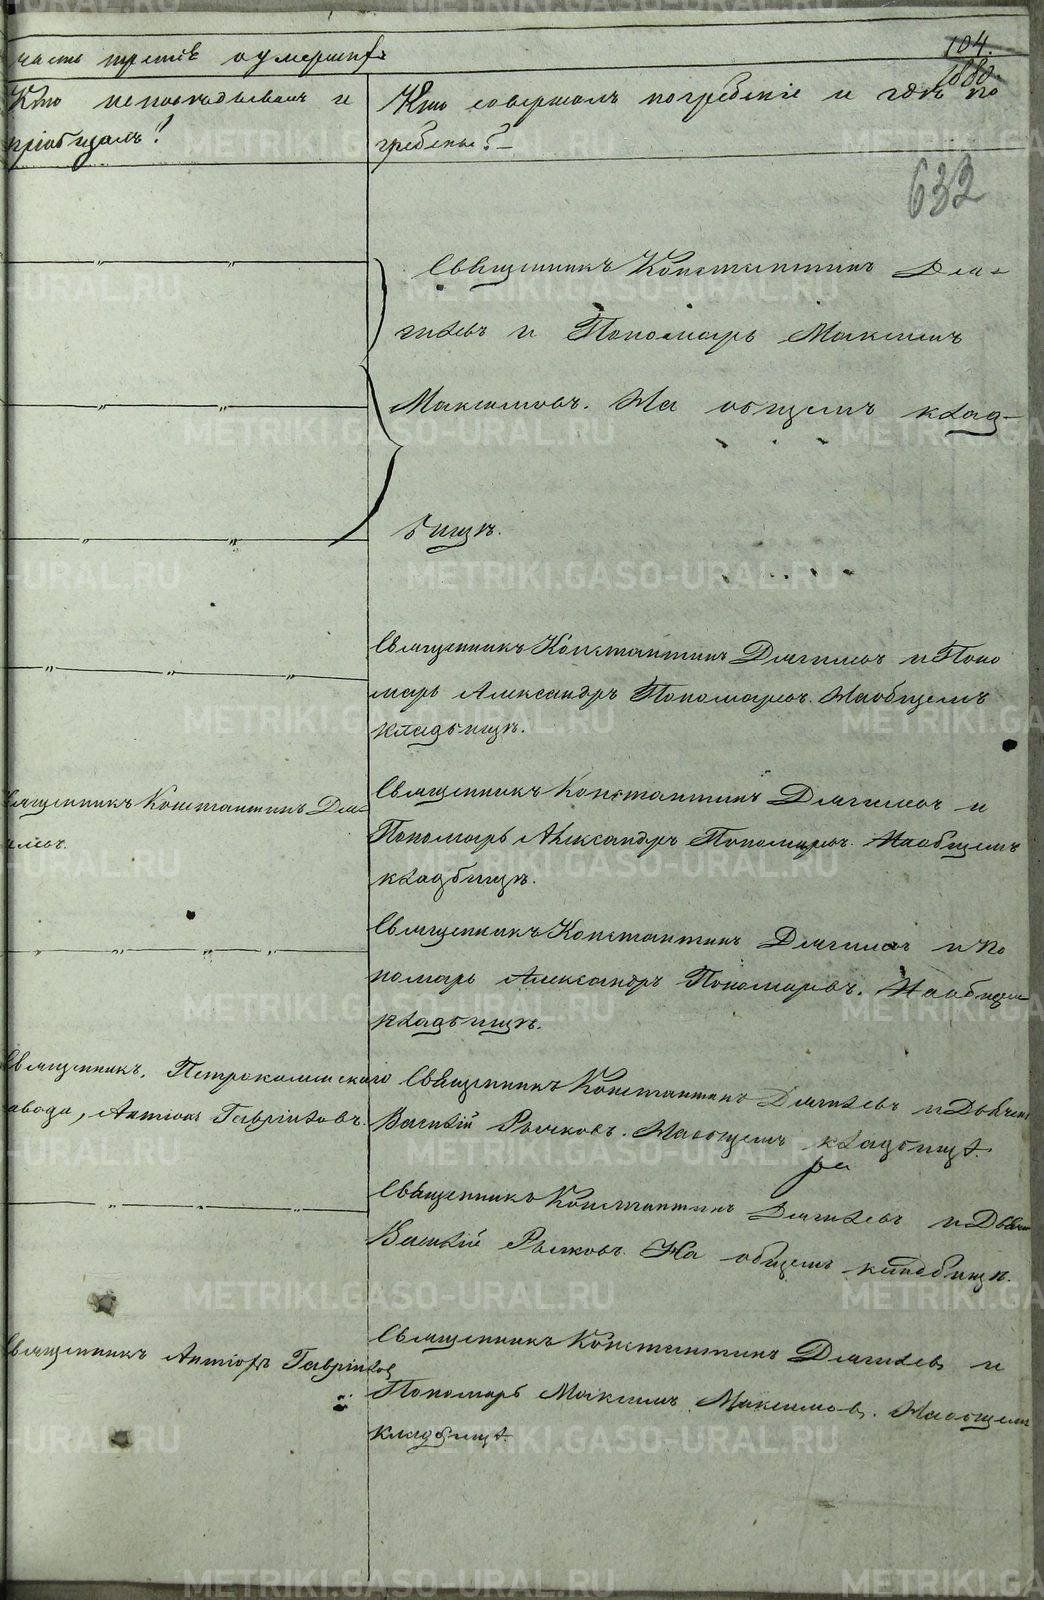 часть третiя о умершихъ
104.
1080.
632
Кто исповѣдывалъ и
прiобщалъ?
Кто совершалъ погребенiе и гдѣ по
гребены?
Священникъ Константинъ Дяги-
левъ и Пономарь Максимъ
Максимовъ. На общемъ клад-
бищѣ.
Священникъ Константинъ Дягилевъ и Поно
марь Александръ Пономаревъ. На общемъ
кладбищѣ.
Священникъ Константинъ Дяги-
левъ.
Священникъ Константинъ Дягилевъ и
Пономарь Александръ Пономаревъ. На общемъ
кладбищѣ.
Священникъ Константинъ Дягилевъ и По
номарь Александръ Пономаревъ. На общемъ
кладбищѣ.
Священникъ, Петрокаменскаго
завода, Антiохъ Гаврiиловъ.
Священникъ Константинъ Дягилевъ и Дьячекъ
Василiй Рычковъ. На общемъ кладбищѣ.
Священникъ Константинъ Дягилевъ и Дьячекъ
Василiй Рычковъ. На общемъ кладбищѣ.
Священникъ Антiохъ Гаврiиловъ
Священникъ Константинъ Дягилевъ и
Пономарь Максимъ Максимовъ. На общемъ
кладбищѣ.
METRIKI.GASO-URAL.RU